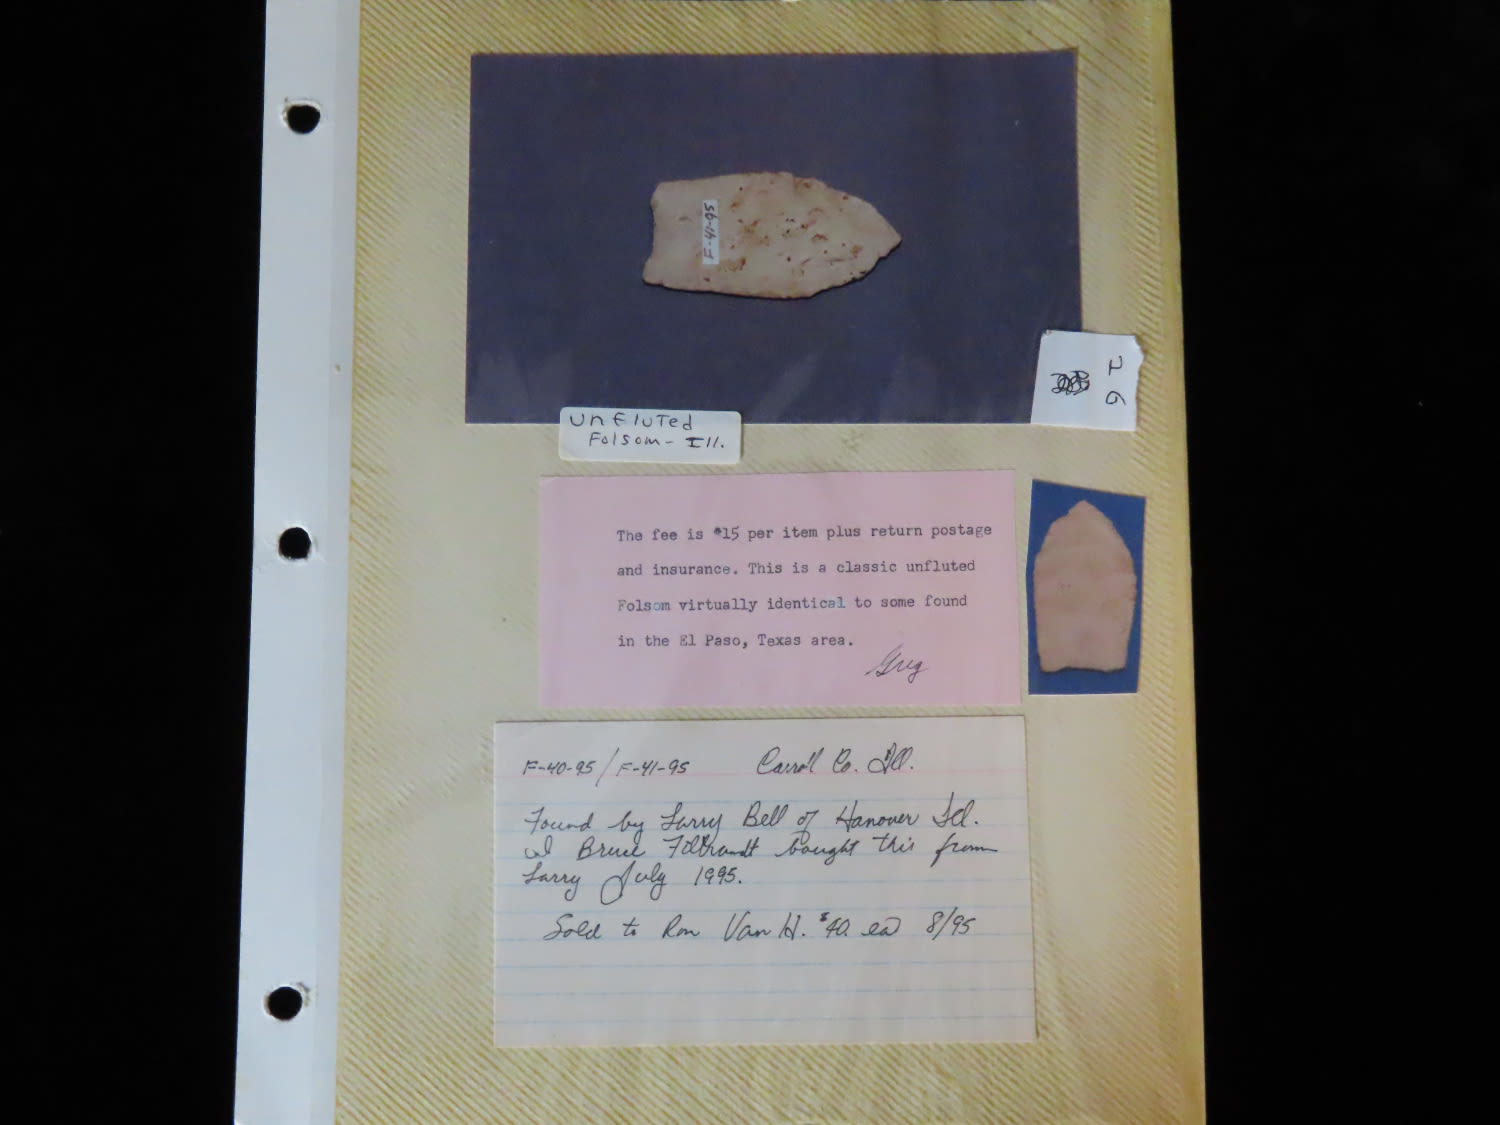 F-41-95
26
Unfluted
Folsom- Ill.
The fee is $15 per item plus return postage
and insurance. This is a classic unfluted
Folsom virtually identical to some found
in the El Paso, Texas area.
Greg
F-40-95/F-41-95 Carroll Co. Ill.
Found by Larry Bell of Hanover Ill.
Bruce bought this from
Larry July 1995.
Sold to Ron Van H. $40. ea 8/95